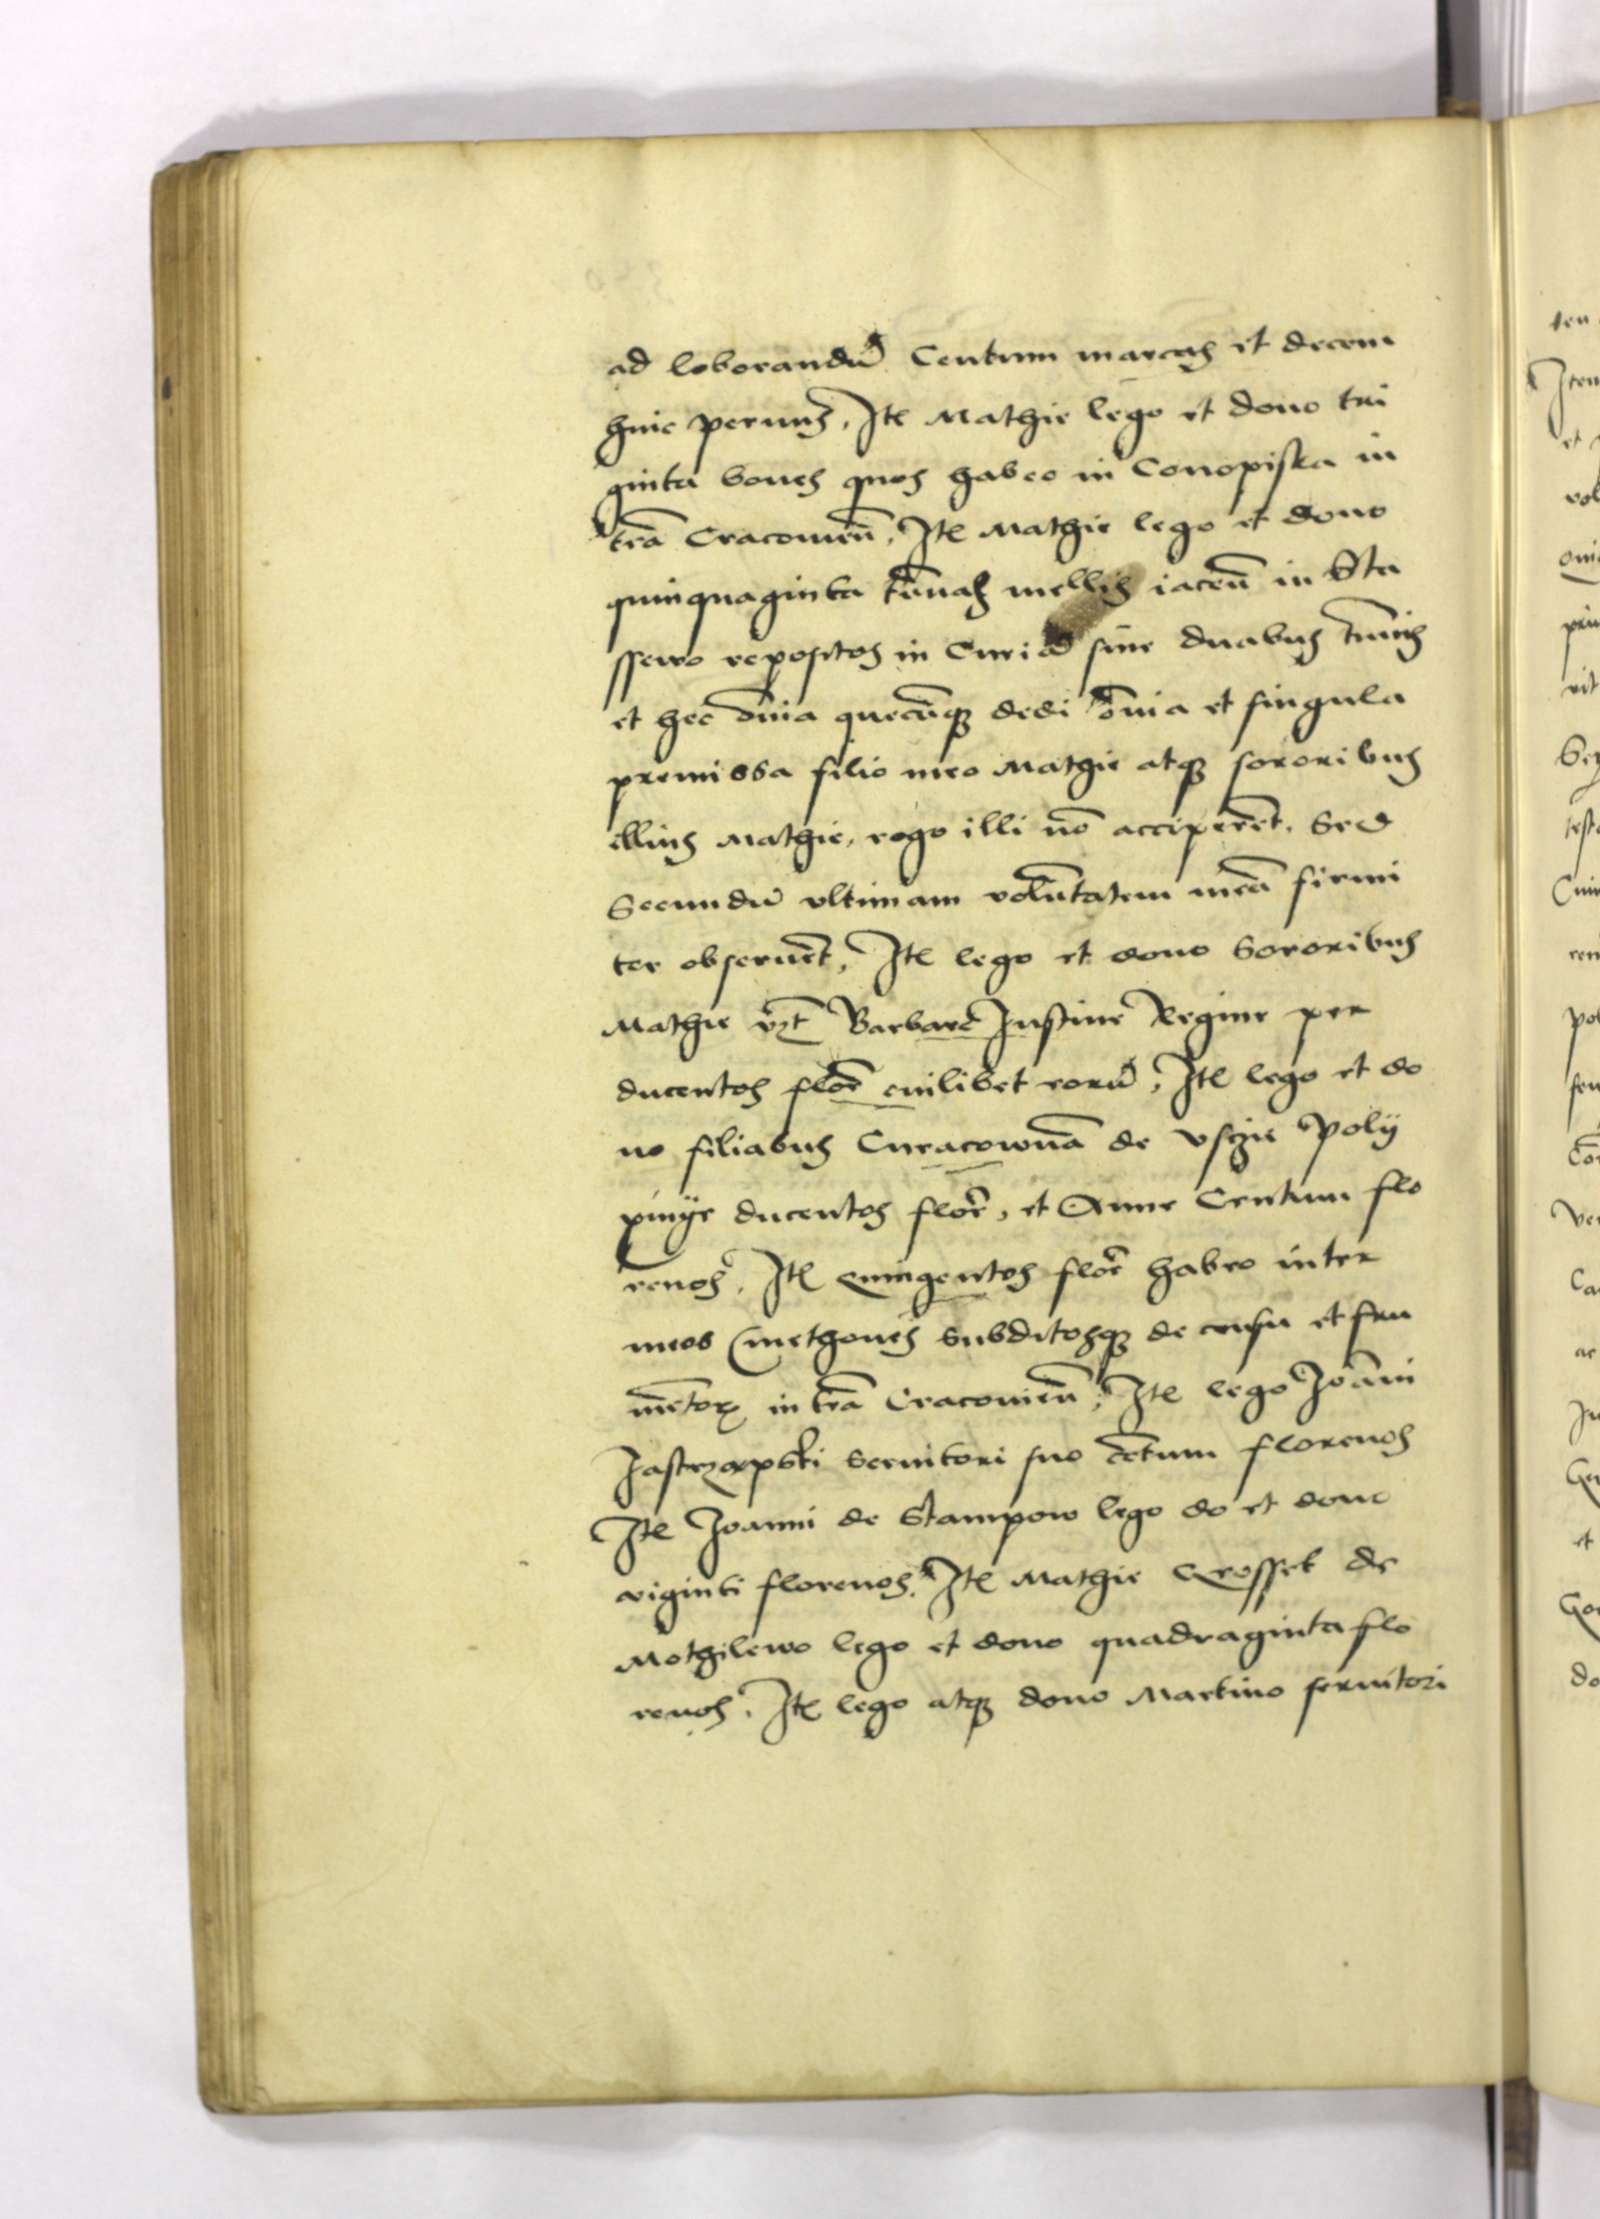 ad loborandũ Centum marcas et decem
huic perunis, Itē Mathie lego et dono tri
ginta boues quos habeo in Conopiska in
trā Cracouieñ, Itē Mathie lego et dono
quinquaginta tũnas mellis iaceñ in Sta
ssewo repositos in Curia sine duabus tũnis
et hec om̃ia quecũq; dedi om̃ia et singula
premissa filio meo Mathie atq; sororibus
illius Mathie, rogo illi nõ acciperẽt, Sed
Secundũ vltimam volũntatem meã firmi
ter obseruẽt, Itē lego et dono Sororibus
Mathie vz̃t Barbare Justine Regine per
ducentos flor̃ cuilibet eorũ, Itē lego et do
no filiabus Curacownã de vsczie Poly
ducentos flor̃, et Anne Centum flo
renos, Itē quingentos flor̃ habeo inter
meos Cmethones Subditosq; de censu et fru
mẽtor̃ in trã Cracouieñ, Itē lego Joãni
Jastrzapski Seruitori suo cẽtum florenos
Itē Joanni de Stampow lego do et dono
viginti florenos, Itē Mathie Grossek de
Mothilewo lego et dono quadraginta flo
renos, Itē lego atq; dono Martino seruitori